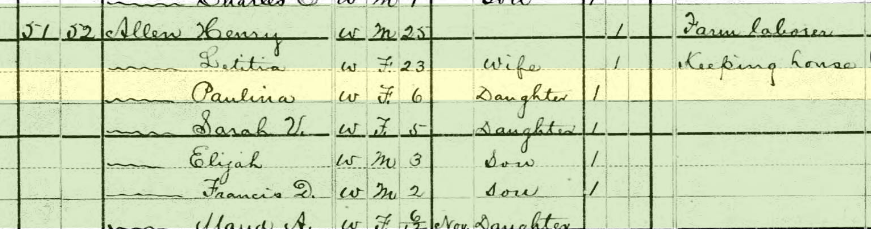 Charles E W M 1 Son 1
51 52 Allen Henry W M 25 1 Farm laborer
—— Letitia W F. 23 Wife 1 Keeping house
—— Paulina W F. 6 Daughter 1
—— Sarah V. W F. 5 Daughter 1
—— Elijah W M 3 Son 1
—— Francis D. W M 2 Son 1
—— Maud A. W F. 6/12 Nov. Daughter